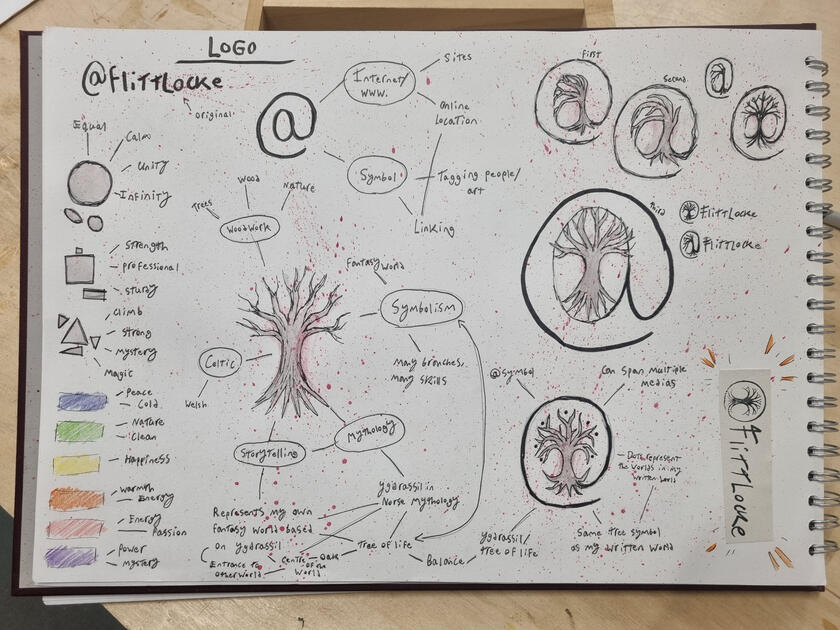 LOGO
@FlittLocke
original
Equal
Calm
Unity
Infinity
Strength
professional
sturdy
climb
strong
mystery
Magic
Peace
Cold
Nature
Clean
Happiness
Warmth
Energy
Energy
Passion
Power
mystery
@
Internet/
www.
Sites
Online
Location
Symbol
Tagging people/
art
Linking
Trees
Wood
Nature
Woodwork
Celtic
Welsh
Storytelling
Represents my own
fantasy world based
on Yggdrassil
Entrance to
other world
Centre
of the
World
Oak
Mythology
Yggdrassil in
Norse Mythology
Tree of life
Balance
Fantasy World
Symbolism
Many branches,
Many skills
First
Second
Third
FlittLocke
FlittLocke
@symbol
Can span multiple
medias
Dots represent
the worlds in my
written world
Same tree symbol
as my written world
Yggdrassil/
tree of life
FlittLocke